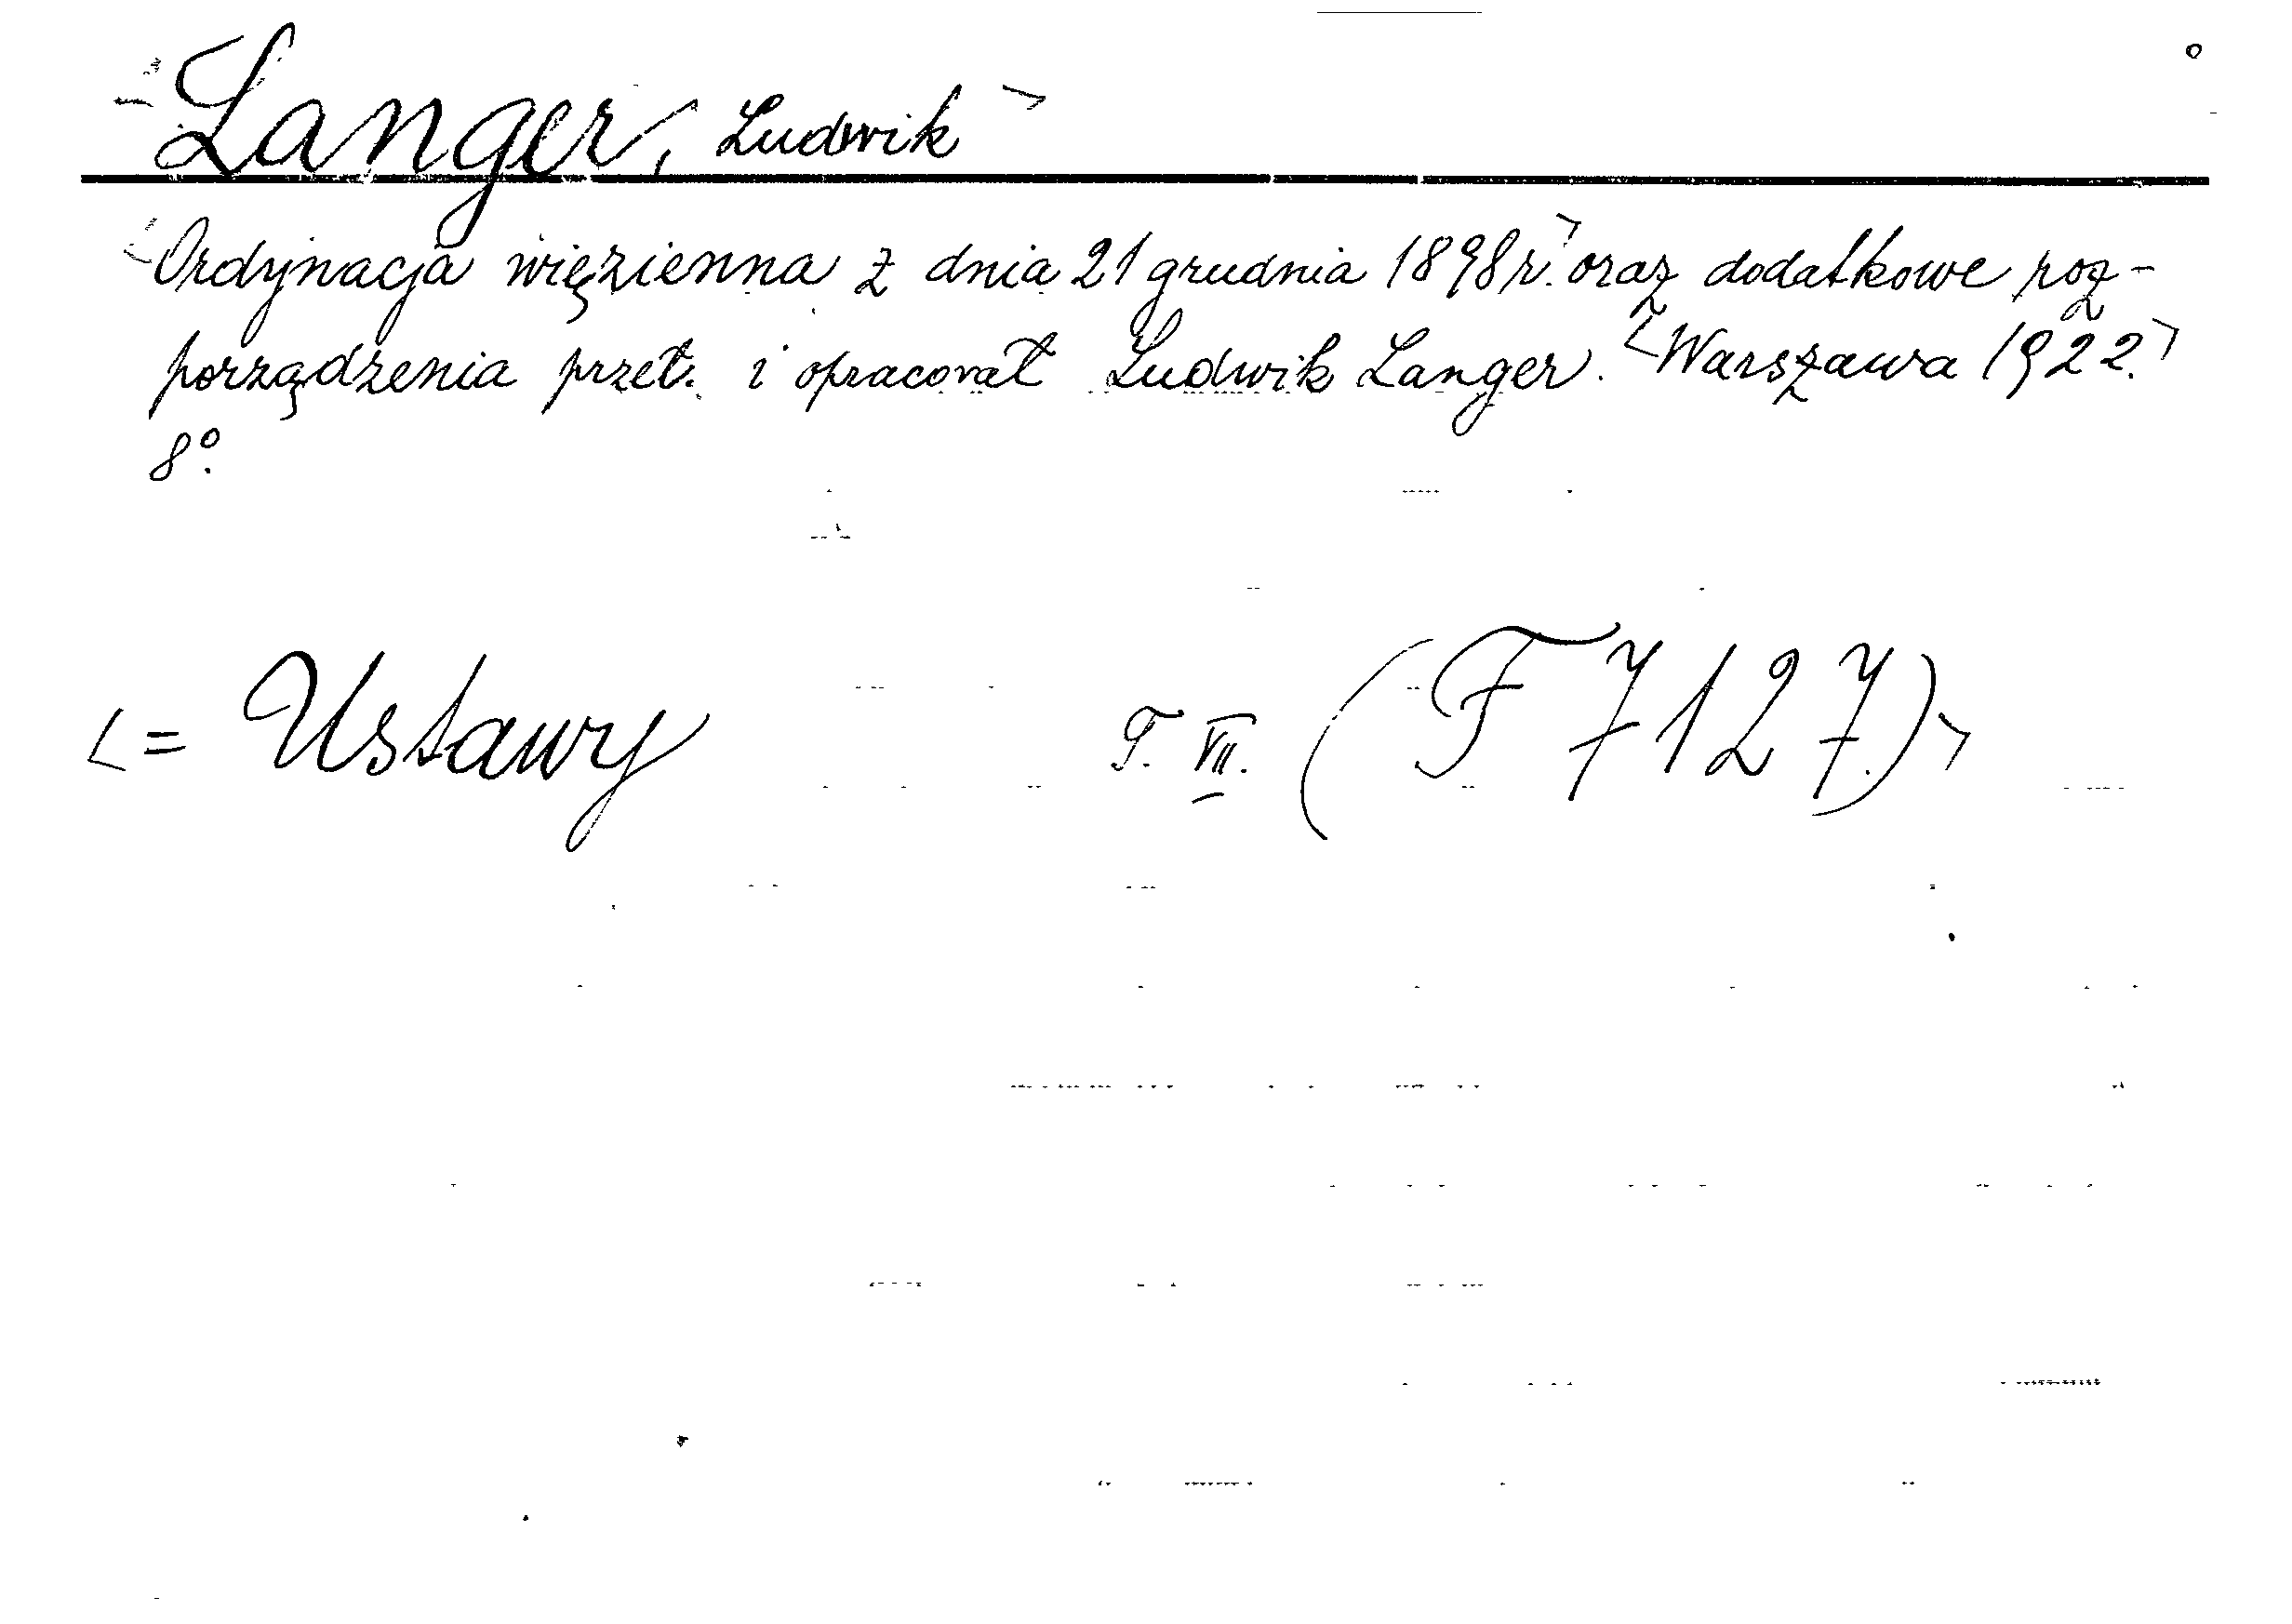 Langer, Ludwik
Ordynacja więzienna z dnia 21 grudnia 1898 r. oraz dodatkowe roz-
porządzenia przeł. i opracował Ludwik Langer. Warszawa 1922.
8º.
= Ustawy T. VII. (F 7127.)